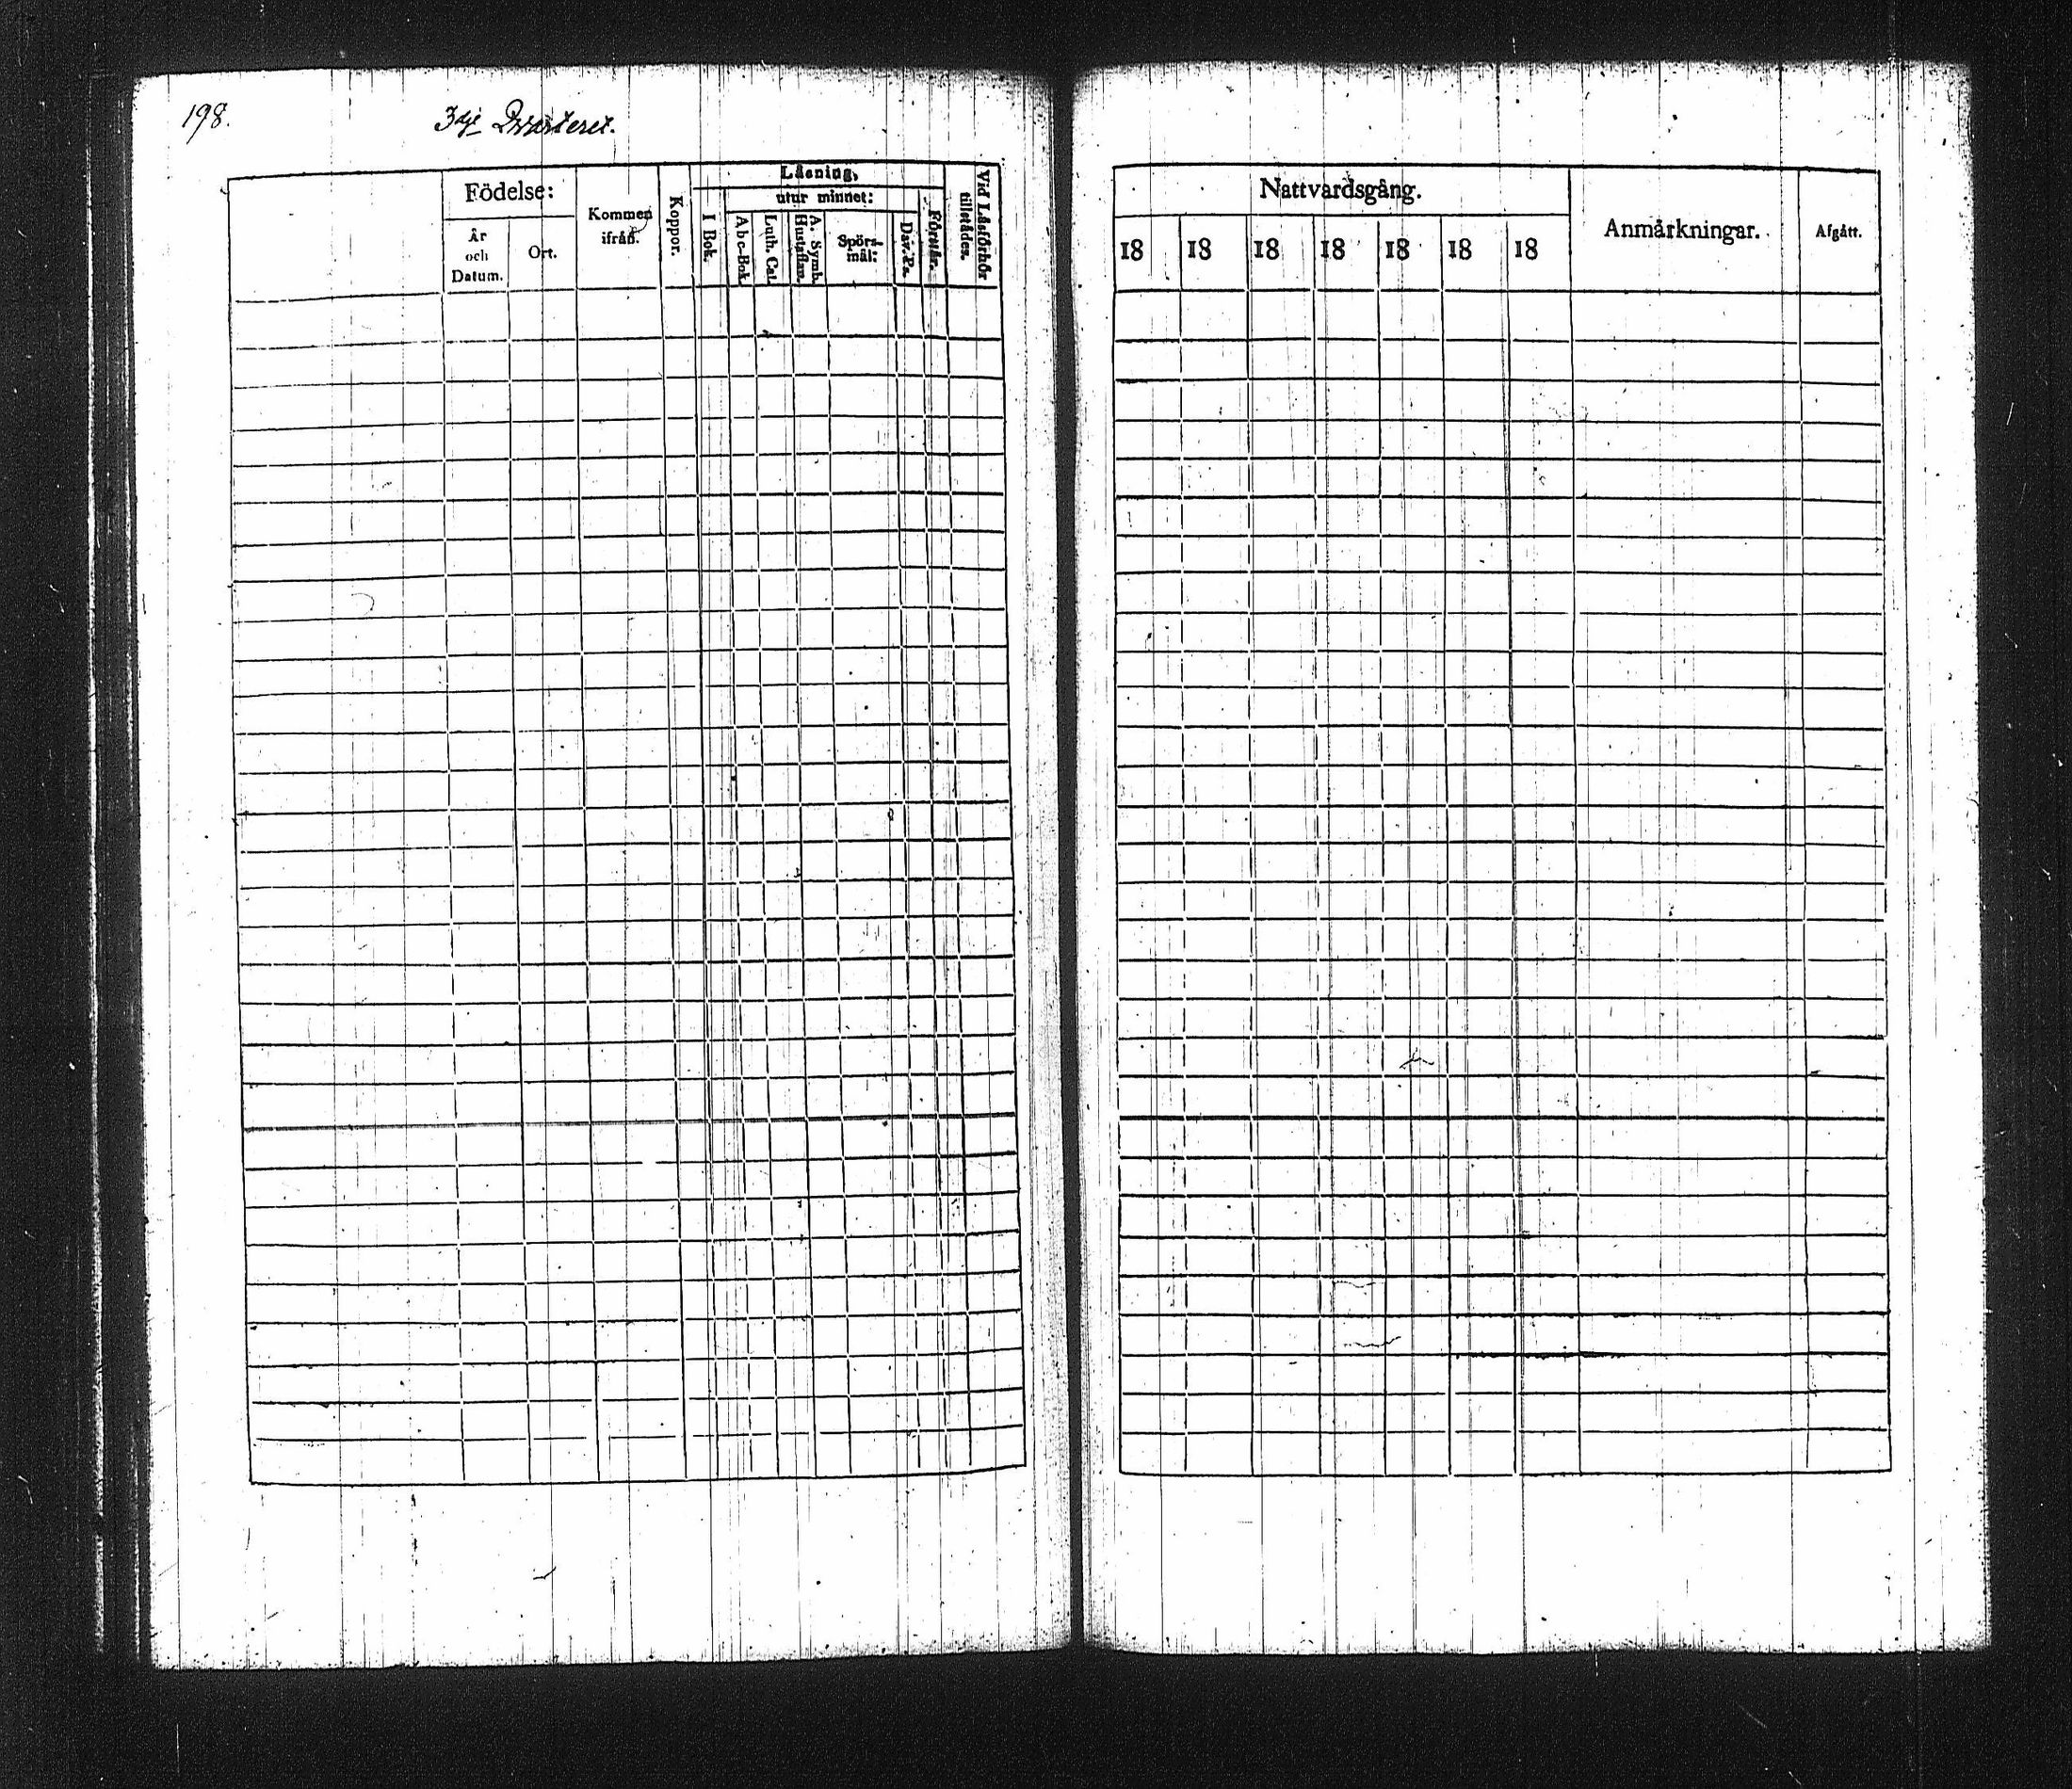 198.
3dje Qvarteret.
Födelse:
År och Datum.
Ort.
Kommen ifrån.
Koppor.
Läsning,
I Bok.
utur minnet:
Abc-Bok
Luth. Cat.
A. Symb. Hustaflan.
Spörs-
mål:
Dav. Ps.
Förstår.
Vid Läsförhör tillstådes.
Nattvardsgång.
18 18 18 18 18 18 18
Anmårkningar.
Afgått.